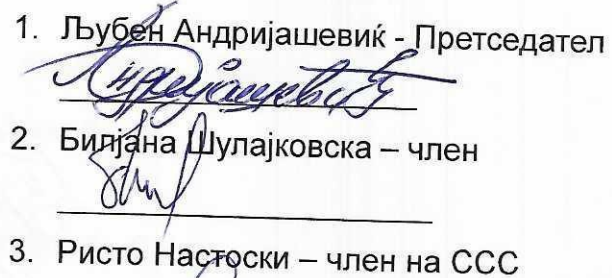 1. Љубен Андријашевиќ - Претседател
Андријашевиќ
2. Билјана Шулајковска – член
3. Ристо Настоски – член на ССС